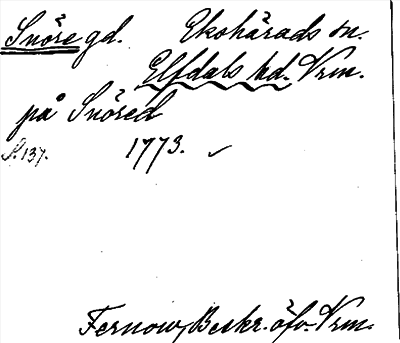 Snöre gd. Ekshärads sn.
Elfdals hd. Vrm.
på Snöred
S. 137. 1773. ✓
Fernow, Beskr. öfv. Vrm.